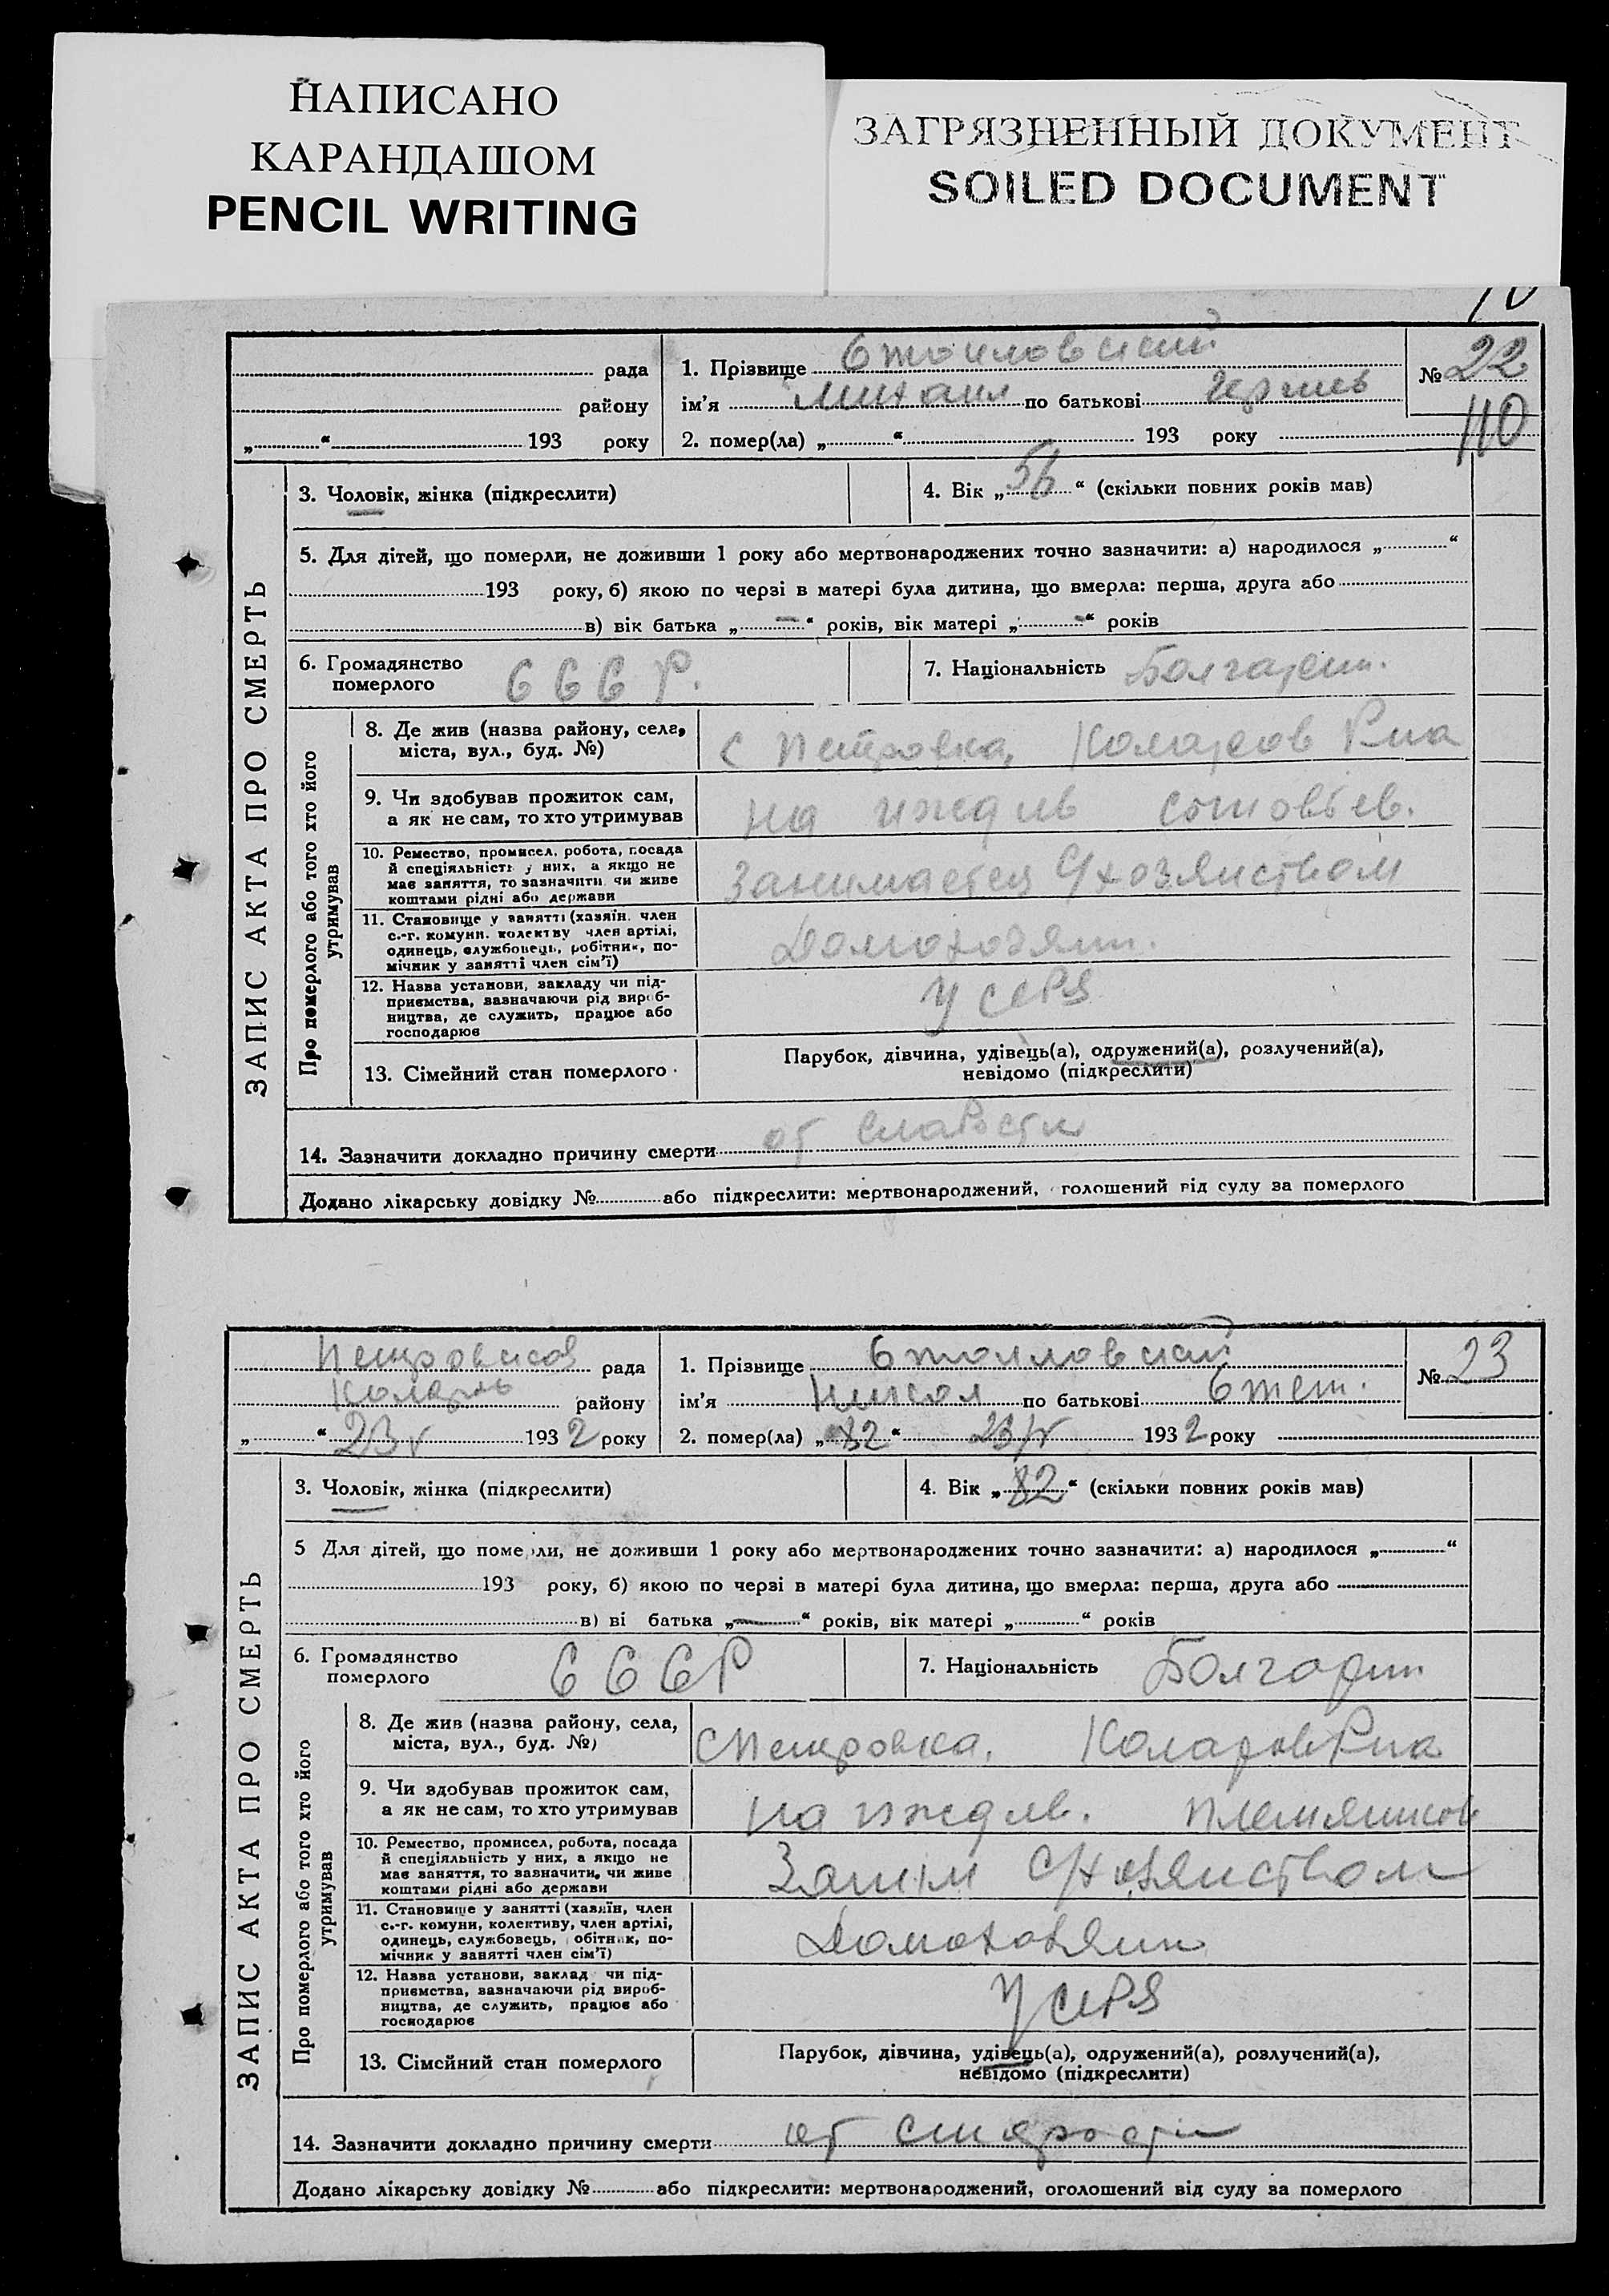 НАПИСАНО
КАРАНДАШОМ
PENCIL WRITING
ЗАГРЯЗНЕННЫЙ ДОКУМЕНТ
SOILED DOCUMENT
рада
району
„ “ 193 року
1. Прізвище Стоиловский
ім’я Михаил по батькові
2. помер(ла) „ “ 193 року
№ 22
110
ЗАПИС АКТА ПРО СМЕРТЬ
3. Чоловік, жінка (підкреслити)
4. Вік „56“ (скільки повних років мав)
5. Для дітей, що померли, не доживши 1 року або мертвонароджених точно зазначити: а) народилося „ “
193 року, б) якою по черзі в матері була дитина, що вмерла: перша, друга або
в) вік батька „—“ років, вік матері „-“ років
6. Громадянство
померлого
СССР.
7. Національність Болгарин.
Про померлого або того хто його
утримував
8. Де жив (назва району, села,
міста, вул., буд. №)
с Петровка, Коларов Рна
9. Чи здобував прожиток сам,
а як не сам, то хто утримував
на иждив сыновьев.
10. Ремество, промисел, робота, посада
й спеціяльність у них, а якщо не
має заняття, то зазначити чи живе
коштами рідні або держави
Занимается С/хозяиством
11. Становище у занятті (хазяїн, член
с.-г. комуни, колективу член артілі,
одинець, службовець, робітник, по-
мічник у занятті член сім’ї)
Домохозяин.
12. Назва установи, закладу чи під-
приємства, зазначаючи рід вироб-
ництва, де служить, працює або
господарює
У себя
13. Сімейний стан померлого
Парубок, дівчина, удівець(а), одружений(а), розлучений(а),
невідомо (підкреслити)
14. Зазначити докладно причину смерти от слабости
Додано лікарську довідку № або підкреслити: мертвонароджений, голошений від суду за померлого
Петровская рада
Колар району
„ “ 23 V 1932 року
1. Прізвище Стоиловский
ім’я Никол по батькові Степ.
2. помер(ла) „82“ 23/V 1932 року
№ 23
ЗАПИС АКТА ПРО СМЕРТЬ
3. Чоловік, жінка (підкреслити)
4. Вік „82“ (скільки повних років мав)
5 Для дітей, що померли, не доживши 1 року або мертвонароджених точно зазначити: а) народилося „ “
193 року, б) якою по черзі в матері була дитина, що вмерла: перша, друга або
в) ві батька „—“ років, вік матері „ “ років
6. Громадянство
померлого
СССР
7. Національність Болгарин
Про померлого або того хто його
утримував
8. Де жив (назва району, села,
міста, вул., буд. №)
с Петровка, Коларов Рна
9. Чи здобував прожиток сам,
а як не сам, то хто утримував
на иждив. племянников
10. Ремество, промисел, робота, посада
й спеціяльність у них, а якщо не
має заняття, то зазначити, чи живе
коштами рідні або держави
Заним С/хозяиством
11. Становище у занятті (хазяїн, член
с.-г. комуни, колективу, член артілі,
одинець, службовець, обітник, по-
мічник у занятті член сім’ї)
Домохозяин
12. Назва установи, заклад чи під-
приємства, зазначаючи рід вироб-
ництва, де служить, працює або
господарює
У себя
13. Сімейний стан померлого
Парубок, дівчина, удівець(а), одружений(а), розлучений(а),
невідомо (підкреслити)
14. Зазначити докладно причину смерти от старости
Додано лікарську довідку № або підкреслити: мертвонароджений, оголошений від суду за померлого